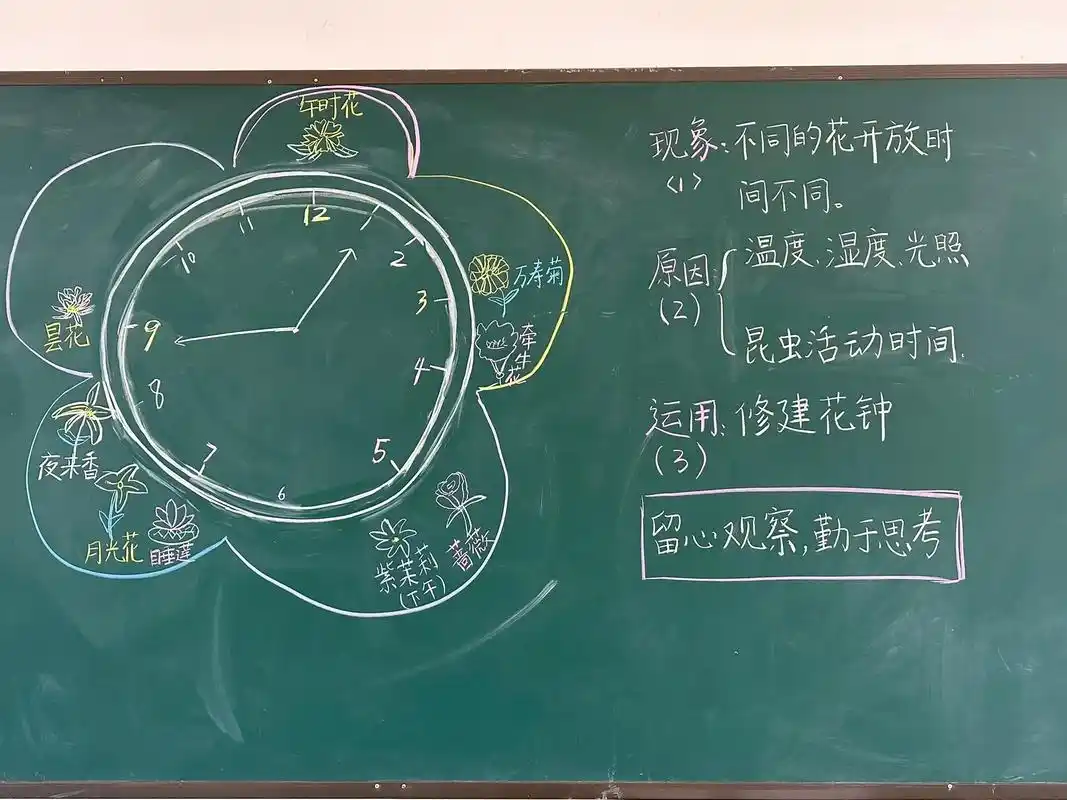 午时花
12
11
10
2
3
9
4
8
7
5
6
万寿菊
牵牛花
昙花
夜来香
月光花
睡莲
紫茉莉
(下午)
蔷薇
现象:不同的花开放时
<1>
间不同。
原因:
(2)
温度、湿度、光照
昆虫活动时间.
运用:修建花钟
(3)
留心观察,勤于思考